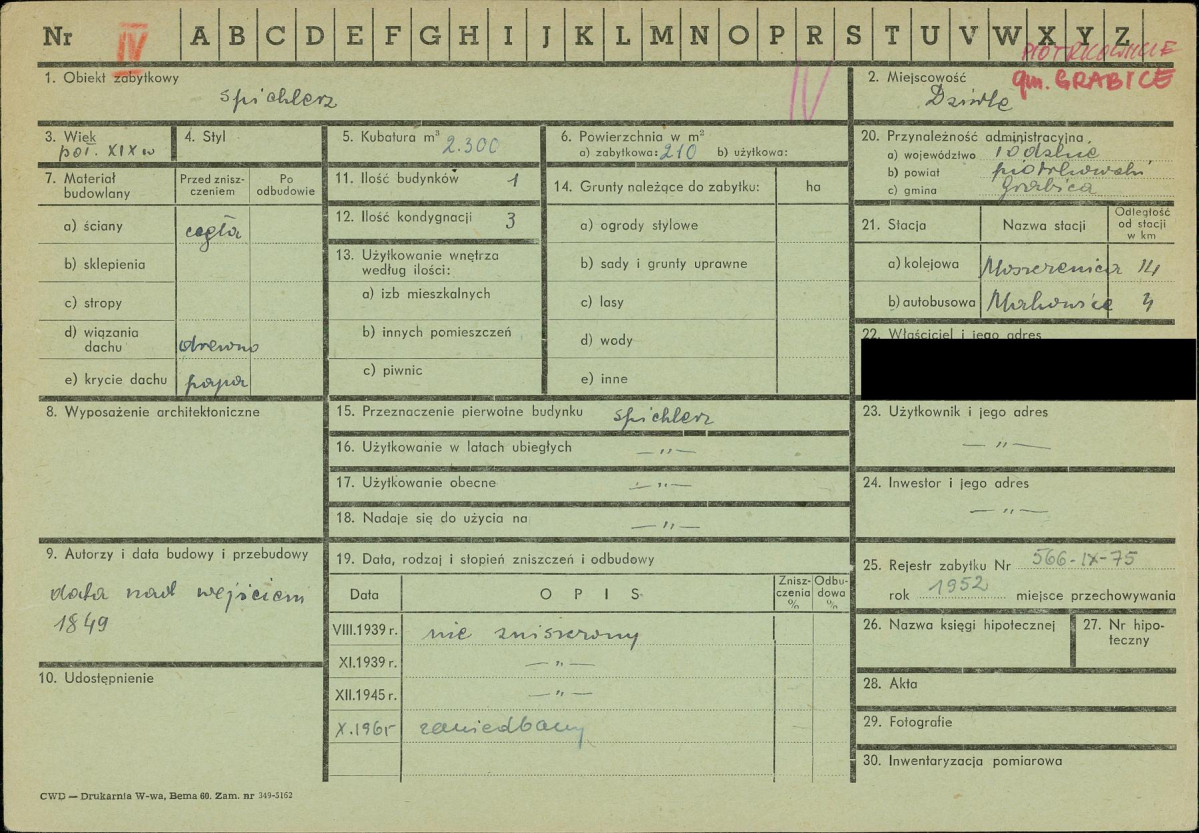 Nr IV A B C D E F G H I J K L M N O P R S T U V W X Y Z
PIOTRKOWSKIE
gm. GRABICE
1. Obiekt zabytkowy
spichlerz
IV
2. Miejscowość
3. Wiek
poł. XIX w
4. Styl
5. Kubatura m³ 2.300
6. Powierzchnia w m²
a) zabytkowa: 210 b) użytkowa:
20. Przynależność administracyjna
a) województwo łódzkie
b) powiat piotrkowski
c) gmina Grabica
7. Materiał budowlany
Przed znisz-
czeniem
Po
odbudowie
a) ściany cegła
b) sklepienia
c) stropy
d) wiązania
dachu drewno
e) krycie dachu papa
11. Ilość budynków 1
12. Ilość kondygnacji 3
13. Użytkowanie wnętrza
według ilości:
a) izb mieszkalnych
b) innych pomieszczeń
c) piwnic
14. Grunty należące do zabytku: ha
a) ogrody stylowe
b) sady i grunty uprawne
c) lasy
d) wody
e) inne
21. Stacja Nazwa stacji
Odległość
od stacji
w km
a) kolejowa Moszczenica 14
b) autobusowa 4
22. Właściciel i jego adres
8. Wyposażenie architektoniczne
15. Przeznaczenie pierwotne budynku spichlerz
16. Użytkowanie w latach ubiegłych — " —
17. Użytkowanie obecne — " —
18. Nadaje się do użycia na — " —
23. Użytkownik i jego adres
— " —
24. Inwestor i jego adres
— " —
9. Autorzy i data budowy i przebudowy
data nad wejściem
1849
10. Udostępnienie
19. Data, rodzaj i stopień zniszczeń i odbudowy
Data O P I S
Znisz-
czenia
%
Odbu-
dowa
%
VIII.1939 r. nie zniszczony
XI.1939 r. — " —
XII.1945 r. — " —
X.1965 zaniedbany
25. Rejestr zabytku Nr 566-IX-75
rok 1952 miejsce przechowywania
26. Nazwa księgi hipotecznej
27. Nr hipo-
teczny
28. Akta
29. Fotografie
30. Inwentaryzacja pomiarowa
CWD — Drukarnia W-wa, Bema 60. Zam. nr 349-5162